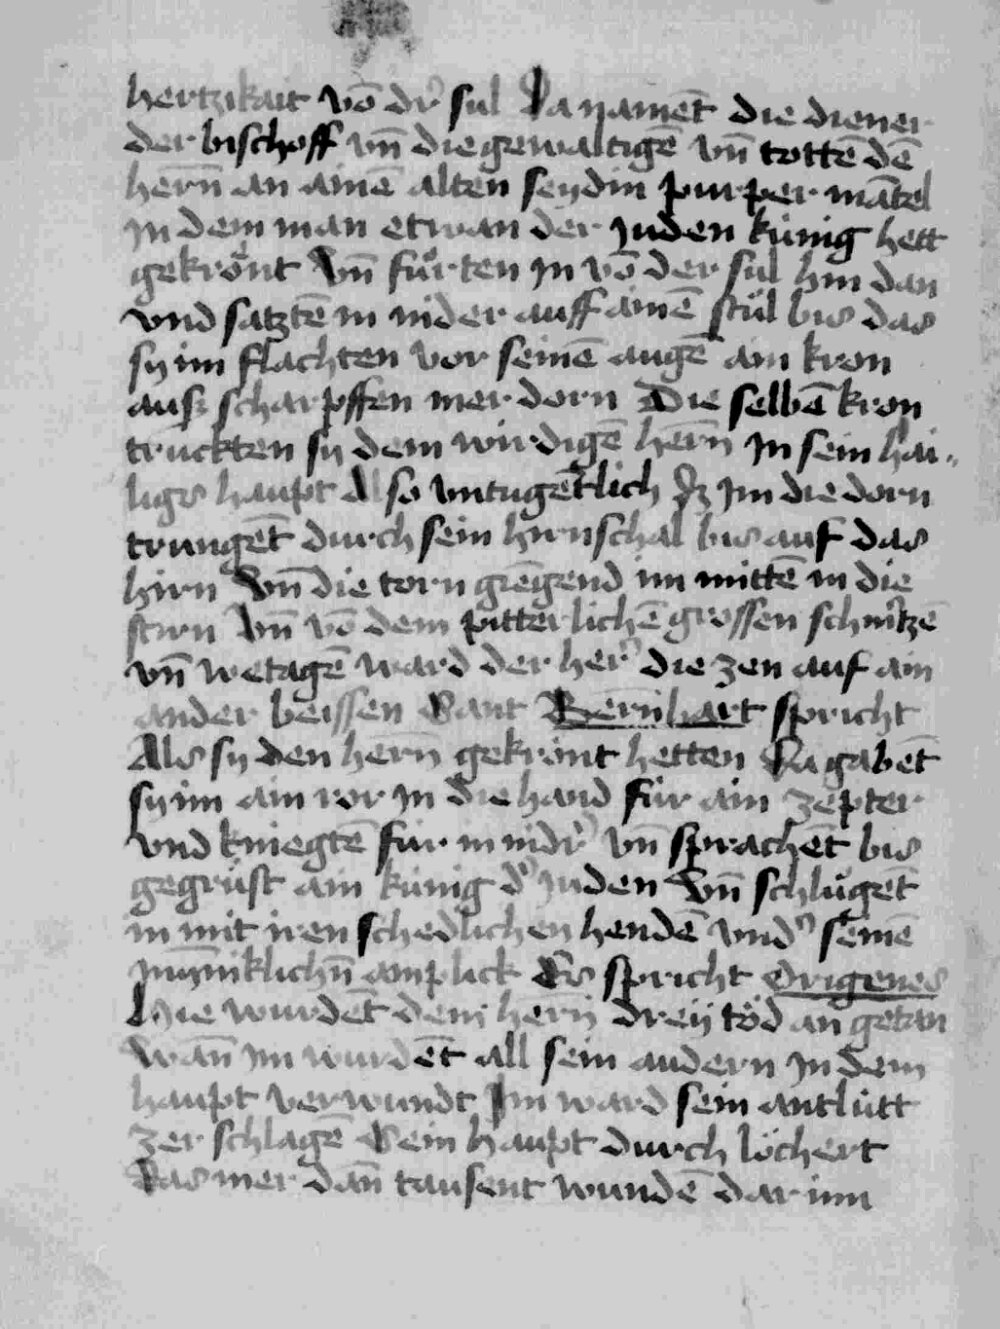 hertzikait võ dr̃ sul Da namẽt die diener
der bischoff vñ die gewaltigẽ vñ tottẽ dẽ
herñ an ainẽ alten seydin purper mãtel
In dem man etwan der Juden künig hett
gekrönt Vñ fürten in võ der sul hin dan
vnd satztẽ in nider auff ainẽ stůl bis das
sy im flachten vor seinẽ augẽ ain kron
auß scharpffen mer dorn Die selbẽ kron
truckten sy dem wirdigẽ herñ In sein hai„
ligs haupt Also vntugẽtlich dz Im die dorn
trungẽt durch sein hirnschal bis auf das
hirn Vñ die torn giẽgend im mittẽ in die
stirn Vñ võ dem pitterlichẽ grossen schmtzẽ
vñ wetagẽ ward der her̃ die zen auf ain
ander beissen Sant Berñhart spricht
Als sy den herñ gekrönt hetten Da gabẽt
sy im ain ror in die hand für ain zepter
vnd kniegtẽ für in nidr̃ vñ sprachẽt bis
gegrüst ain künig d' Juden Vñ schlůgẽt
in mit iren schedlichen hendẽ vnd' seinẽ
miñiklichñ anplick Es spricht Origenes
Hie wurdẽt dem herñ dreij töd an getan
Wañ im wurdẽt all sein audern in dem
haupt verwundt Im ward sein antlütt
zer schlagẽ Sein haupt durch löchert
Das mer dañ tausent wundẽ dar inn